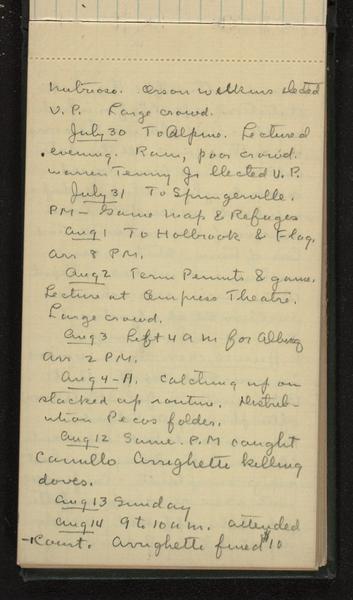 Nutrioso. Orson Wilkins elected
V.P. Large crowd.
July 30 To Alpine. Lectured
evening. Rain, poor crowd.
Warren Tenny Jr Elected V.P.
July 31 To Springerville.
PM - Game Map & Refuges
Aug 1 To Holbrook & Flag.
arr 8 P.M.
Aug 2 Term Permits & game.
Lecture at Empress Theatre.
Large crowd.
Aug 3 Left 4 am for Albuq
arr 2 P.M.
Aug 4-11. Catching up on
stacked up routine. Distrib-
ution Pecos folder.
Aug 12 Same. P.M caught
Camillo Arrighette killing
doves.
Aug 13 Sunday
Aug 14 9 to 10 a.m. attended
Court. Arrighette fined $10